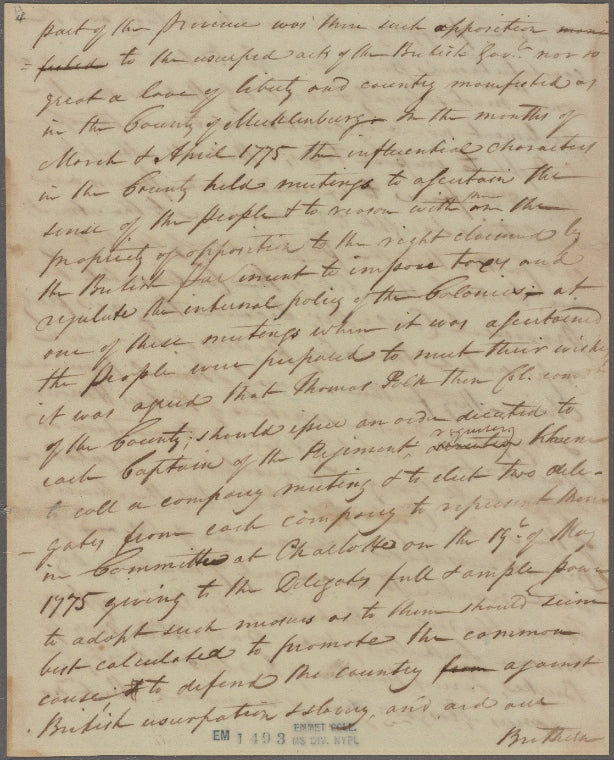 4
part of the Province was there such opposition
to the usurped acts of the British Govt. nor so
great a love of liberty and country manifested as
in the County of Mecklenburg. In the months of
March & April 1775 the influential characters
in the County held meetings to ascertain the
sense of the people & to reason with on the
propriety of opposition to the right claimed by
the British Parliment to impose taxes and
regulate the internal policy of the Colonies; at
one of these meetings when it was ascertained
the People were prepared to meet their wishes
it was agreed that Thomas Polk then Col. comdt.
of the County; should issue an order directed to
each Captain of the Regiment, requiring
to call a company meeting & to elect two dele-
gates from each company to represent them
in Committee at Charlotte on the 19th. of May
1775 giving to the Delegates full & ample power
to adopt such measures as to them should seem
best calculated to promote the common
cause, to defend the country from against
British usurpation & slavery, and aid our
Brethren
EM 1493
EMMET COLL.
MS DIV. NYPL